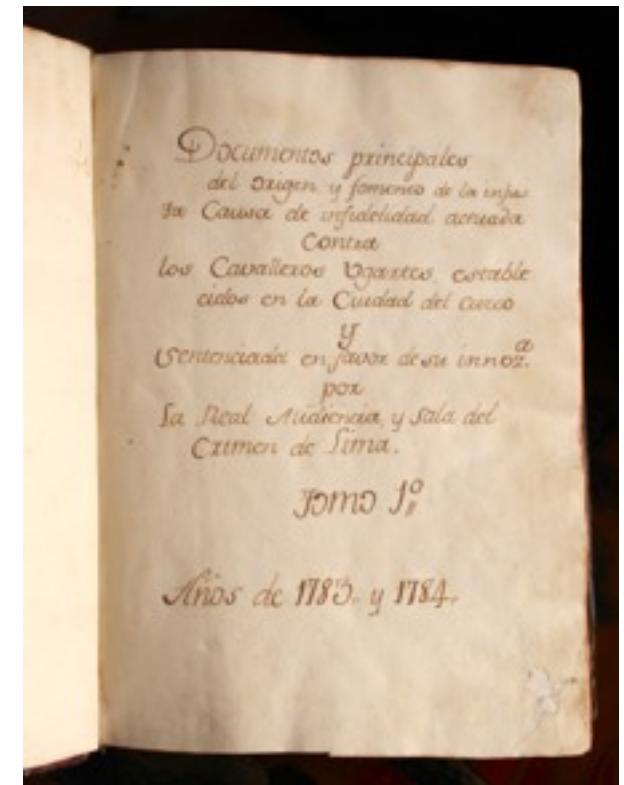 Documentos principales
del origen y fomento de la injus
ta Causa de infidelidad actuada
Contra
los Cavalleros Ugartes, estable
cidos en la Cuidad del Cuzco
y
Sentenciada en favor de su innoz.a
por
la Real Audiencia, y Sala del
Crimen de Lima.
Tomo 1º
Años de 1783. y 1784.